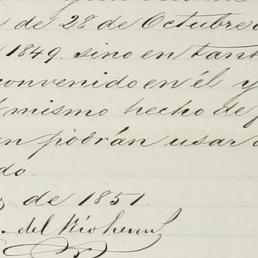 de 28 de Octubre
1849. sino en tant
convenido en él y
mismo hecho de
podrán usar
do.
de 1851
del Rio